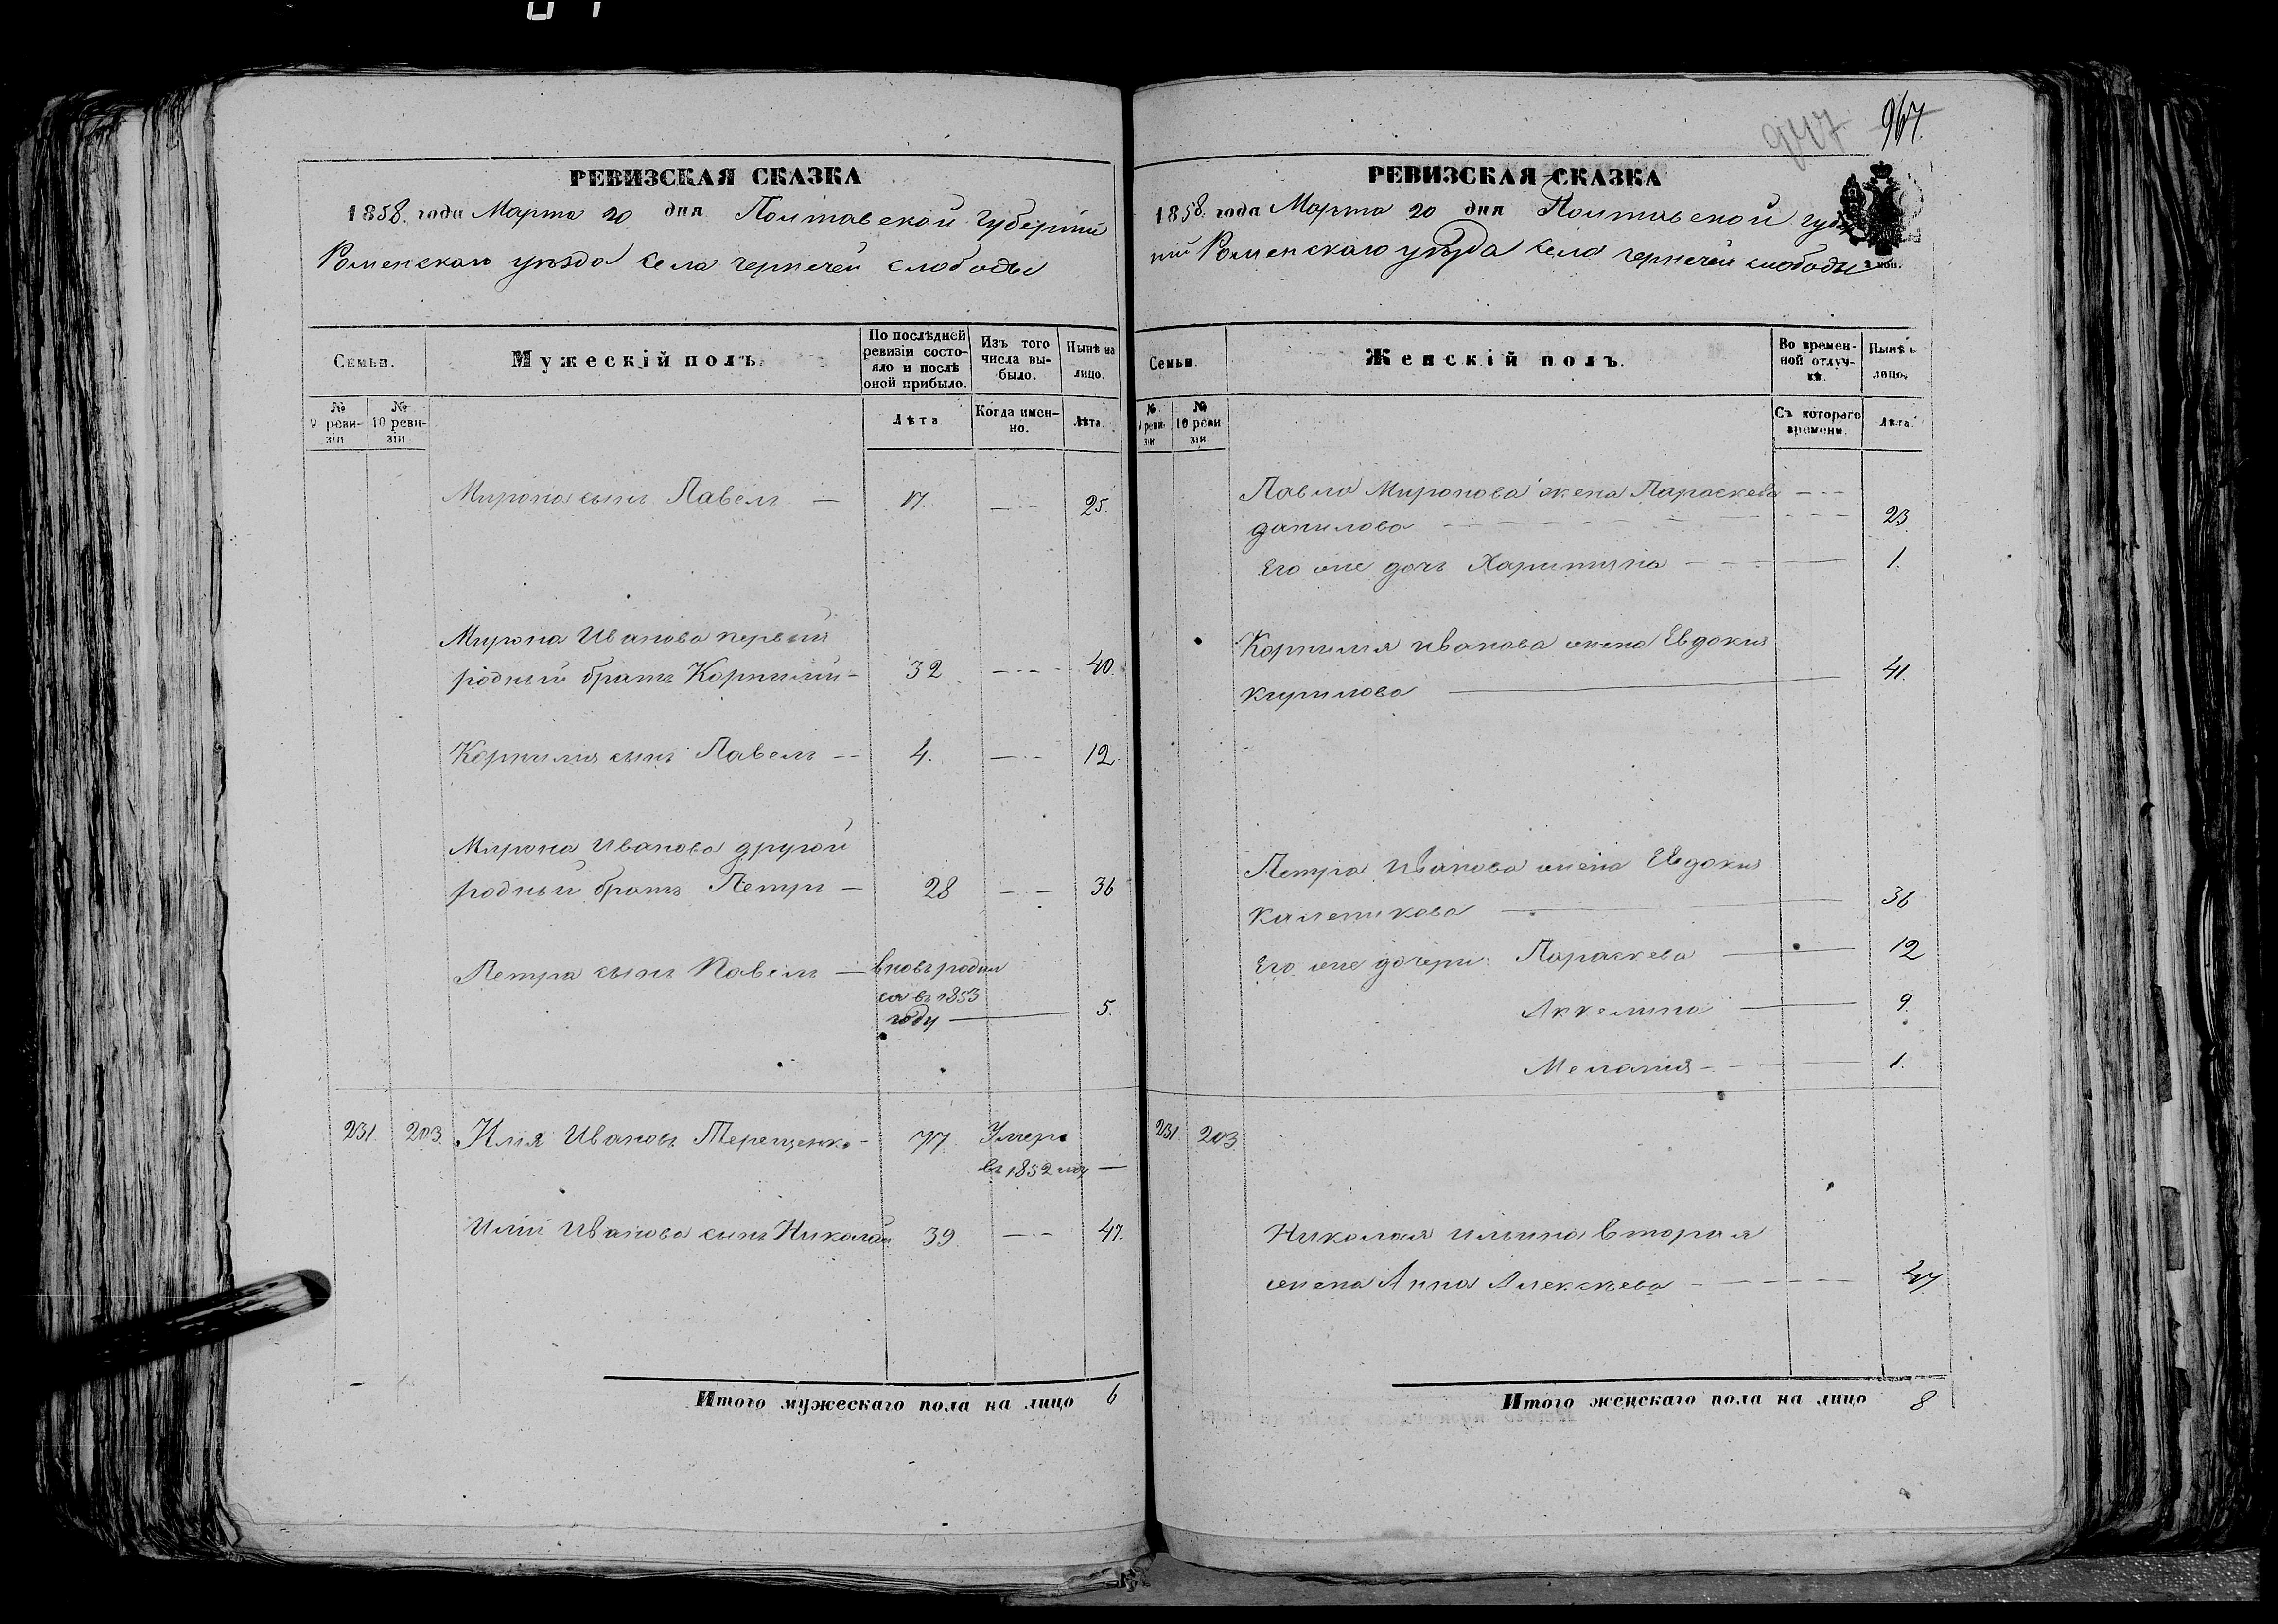 947 967.
РЕВИЗСКАЯ СКАЗКА
1858 года Марта 20 дня Полтавской Губерніи
Роменскаго уезда Села Чернечей Слободы
Семьи.
Мужескій полъ.
По послѣдней ревизіи состояло и послѣ оной прибыло.
Изъ того числа выбыло.
Нынѣ на лицо.
№ 9 ревизіи
№ 10 ревизіи
Лѣта
Когда именно.
Лѣта.
Мирона сынъ Павелъ — 17. — 25.
Мирона Иванова первый
родный братъ Корнилий — 32 — 40.
Корнилия сынъ Павелъ — 4. — 12.
Мирона Иванова другой
родный братъ Петръ — 28 — 36
Петра сынъ Павелъ — вновь родил
ся въ 1853
году — 5.
231. 203. Илия Ивановъ Терещенко - 77. Умеръ
въ 1852 году —
Илии Иванова сынъ Николай 39 — 47.
Итого мужескаго пола на лицо 6
РЕВИЗСКАЯ СКАЗКА
1858. года Марта 20 дня Полтавской губер
ніи Роменскаго уѣзда села чернечей слободы
Семьи.
Женскій полъ.
Во временной отлучкѣ.
Нынѣ
лицо.
№ 9 ревизіи
№ 10 ревизіи
Съ котораго времени.
Лѣта.
Павла Миронова жена Параскева — —
данилова — 23
Его же дочь Харитина — 1.
Корнилия иванова жена Евдокия
кирилова — 41.
Петра Иванова жена Евдокия
36
Его же дочери: Параскева — 12
Аккелина — 9.
Мелания — 1.
231 203
Николая ильина вторая
жена Анна Алексѣева — 47.
Итого женскаго пола на лицо 8